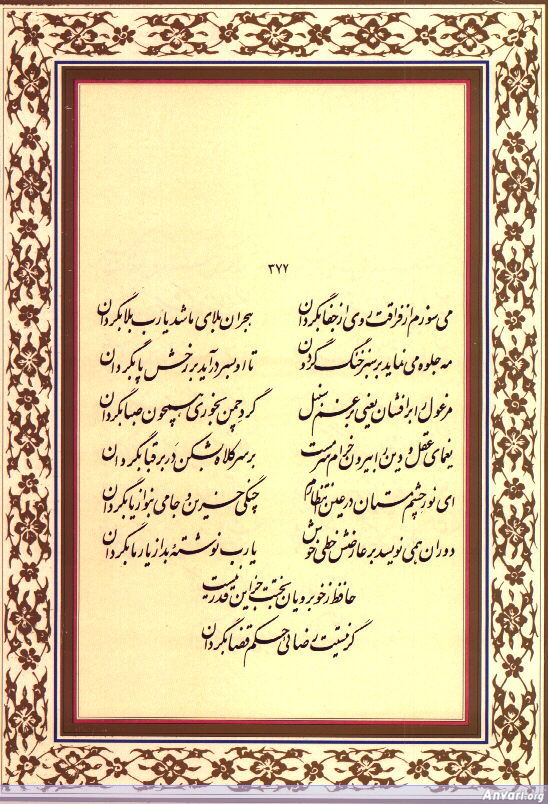 ۳۷۷
می سوزم از فراقت روی از جفا بگردان هجران بلای ما شد یارب بلا بگردان
مه جلوه می نماید بر سبز خنگ گردون تا او بسر درآید بر رخش پا بگردان
مرغول را برافشان یعنی برغم سنبل گرد چمن بخوری همچون صبا بگردان
یغمای عقل و دین را بیرون خرام سرمست بر سر کلاه بشکن در بر قبا بگردان
ای نور چشم مستان در عین انتظارم چنگی حزین و جامی بنواز یا بگردان
دوران همی نویسد بر عارضش خطی خوش یارب نوشتهٔ بد از یار ما بگردان
حافظ ز خوبرویان بختت جز این قدر نیست
گر نیستت رضائی حکم قضا بگردان
AnYari.org